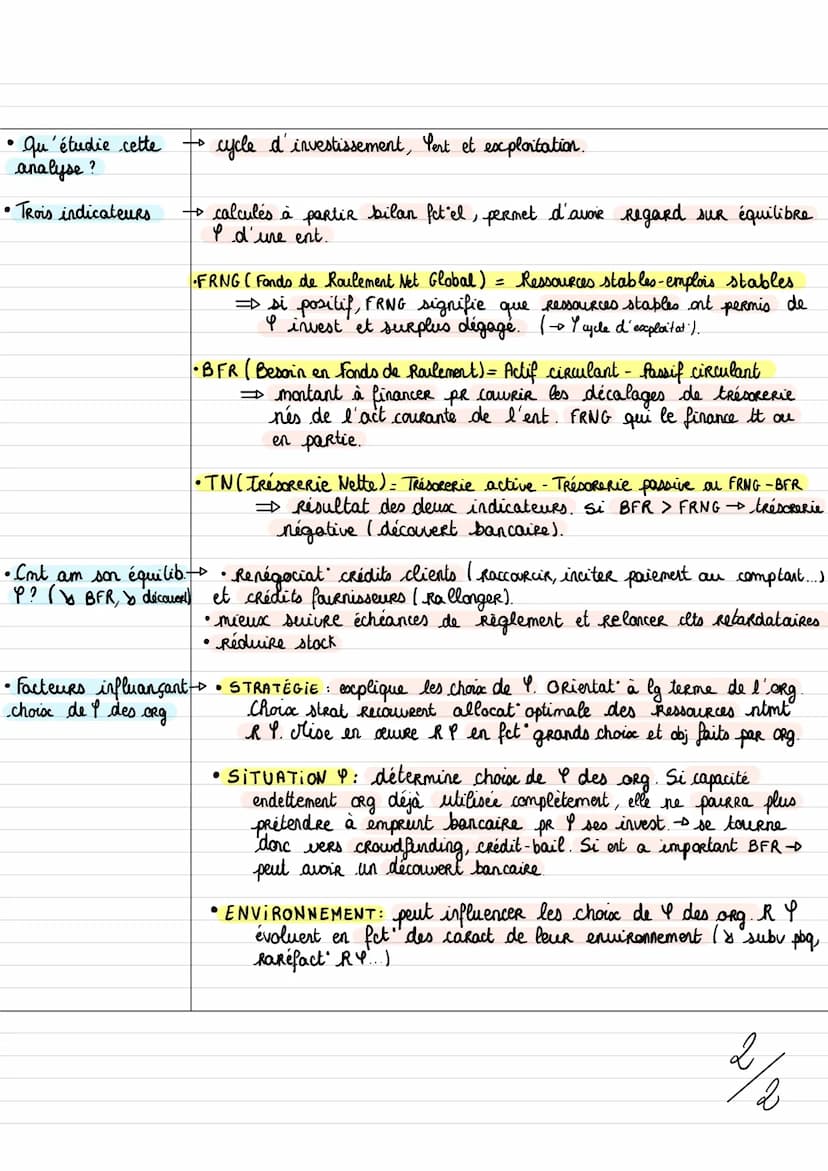 • Qu'étudie cette → cycle d'investissement, Ψent et exploitation.
analyse ?
• Trois indicateurs → calculés à partir bilan fct°el, permet d'avoir regard sur équilibre
Ψ d'une ent.
• FRNG ( Fonds de Roulement Net Global ) = Ressources stables - emplois stables
⇒ si positif, FRNG signifie que ressources stables ont permis de
Ψ invest° et surplus dégagé. (→ Ψ cycle d'exploitat°).
• BFR ( Besoin en Fonds de Roulement) = Actif circulant - Passif circulant
⇒ montant à financer pr couvrir les décalages de trésorerie
nés de l'act courante de l'ent. FRNG qui le finance tt ou
en partie.
• TN ( Trésorerie Nette) = Trésorerie active - Trésorerie passive ou FRNG - BFR
⇒ résultat des deux indicateurs. si BFR > FRNG → trésorerie
négative ( découvert bancaire).
• Cmt am son équilib. → • Renégociat° crédits clients ( raccourcir, inciter paiement au comptant...)
Ψ ? ( ↘ BFR, ↘ découvert) et crédits fournisseurs ( rallonger).
• mieux suivre échéances de règlement et relancer clts retardataires
• réduire stock
• Facteurs influançant → • STRATÉGIE : explique les choix de Ψ. Orientat° à lg terme de l'org.
choix de Ψ des org Choix strat recouvrent allocat° optimale des ressources ntmt
R Ψ. Mise en œuvre R Ψ en fct° grands choix et obj faits par org.
• SITUATION Ψ : détermine choix de Ψ des org. Si capacité
endettement org déjà utilisée complètement, elle ne pourra plus
prétendre à emprunt bancaire pr Ψ ses invest. → se tourne
donc vers crowdfunding, crédit-bail. Si ent a important BFR →
peut avoir un découvert bancaire
• ENVIRONNEMENT : peut influencer les choix de Ψ des org. R Ψ
évoluent en fct° des caract de leur environnement ( ↘ subv pbq,
raréfact° R Ψ...)
2/2